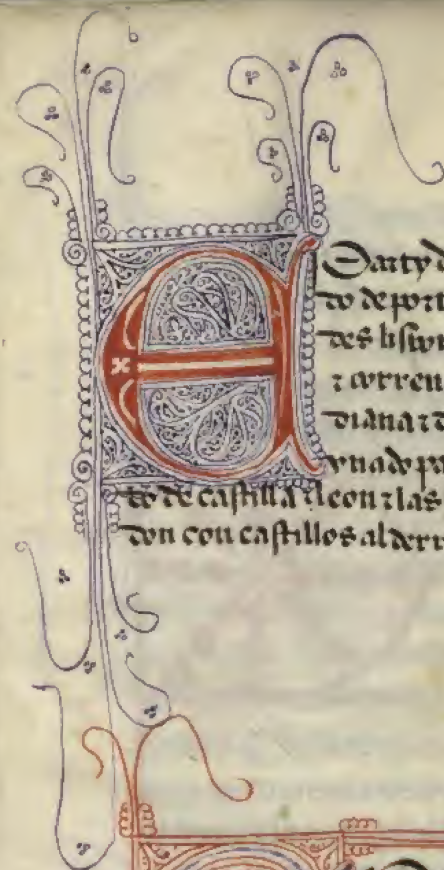 E Party d
to de port
des lisbon
⁊ corren
diana ⁊ d
vnado pa
to de castilla ⁊ leon ⁊ las
don con castillos al derr